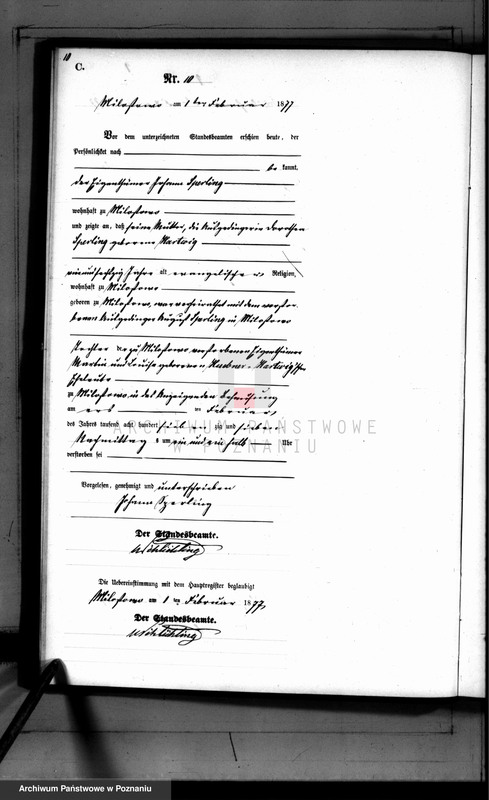 10
C.
Nr. 10
Milostowo am 1 ten Februar 1877
Vor dem unterzeichneten Standesbeamten erschien heute, der
Persönlichkeit nach
be kannt,
der Eigenthümer Johann Sperling
wohnhaft zu Milostowo
und zeigte an, daß seine Mutter, die Dorothea
Sperling geborene Hartwig
ein und sechzig Jahre alt evangelischer Religion,
wohnhaft zu Milostowo
geboren zu Milostowo, war verheirathet mit dem verstor-
benen August Sperling in Milostowo
Tochter der zu Milostowo verstorbenen Eigenthümer
Martin und Louise geborenen Hartwig'schen
Eheleute
zu Milostowo, in des Anzeigenden Behausung
am ers ten Februar,
des Jahres tausend acht hundert sieben zig und sieben
Nachmittag s um ein und ein halb Uhr
verstorben sei
Vorgelesen, genehmigt und unterschrieben
Johann Sperling
Der Standesbeamte.
Die Uebereinstimmung mit dem Hauptregister beglaubigt
Milostowo am 1 ten Februar 1877
Der Standesbeamte.
ARCHIWUM PAŃSTWOWE
W POZNANIU
Archiwum Państwowe w Poznaniu